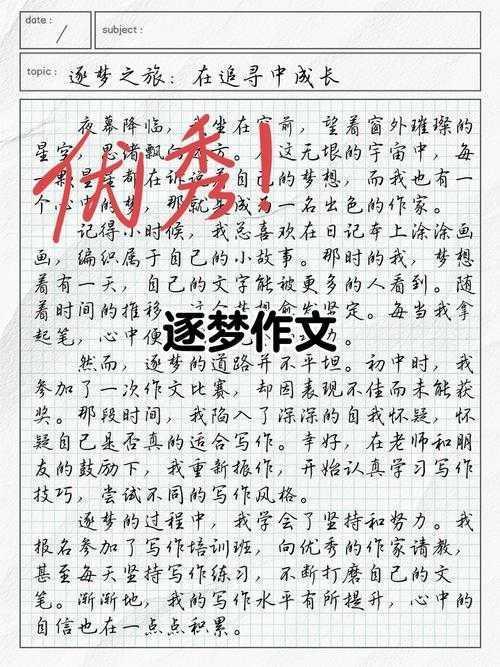 date :
subject :
topic : 逐梦之旅：在追寻中成长
夜幕降临，我坐在窗前，望着窗外璀璨的
星空，思绪飘向远方。在这无垠的宇宙中，每
一颗星星都在诉说着自己的梦想，而我也有一
个心中的梦，那就是成为一名出色的作家。
优秀！
记得小时候，我总喜欢在日记本上涂涂画
画，编织属于自己的小故事。那时的我，梦想
着有一天，自己的文字能被更多的人看到。随
着时间的推移，这个梦想愈发坚定。每当我拿
起笔，心中便
逐梦作文
然而，逐梦的道路并不平坦。初中时，我
参加了一次作文比赛，却因表现不佳而未能获
奖。那段时间，我陷入了深深的自我怀疑，怀
疑自己是否真的适合写作。幸好，在老师和朋
友的鼓励下，我重新振作，开始认真学习写作
技巧，尝试不同的写作风格。
逐梦的过程中，我学会了坚持和努力。我
报名参加了写作培训班，向优秀的作家请教，
甚至每天坚持写作练习，不断打磨自己的文
笔。渐渐地，我的写作水平有所提升，心中的
自信也在一点点积累。